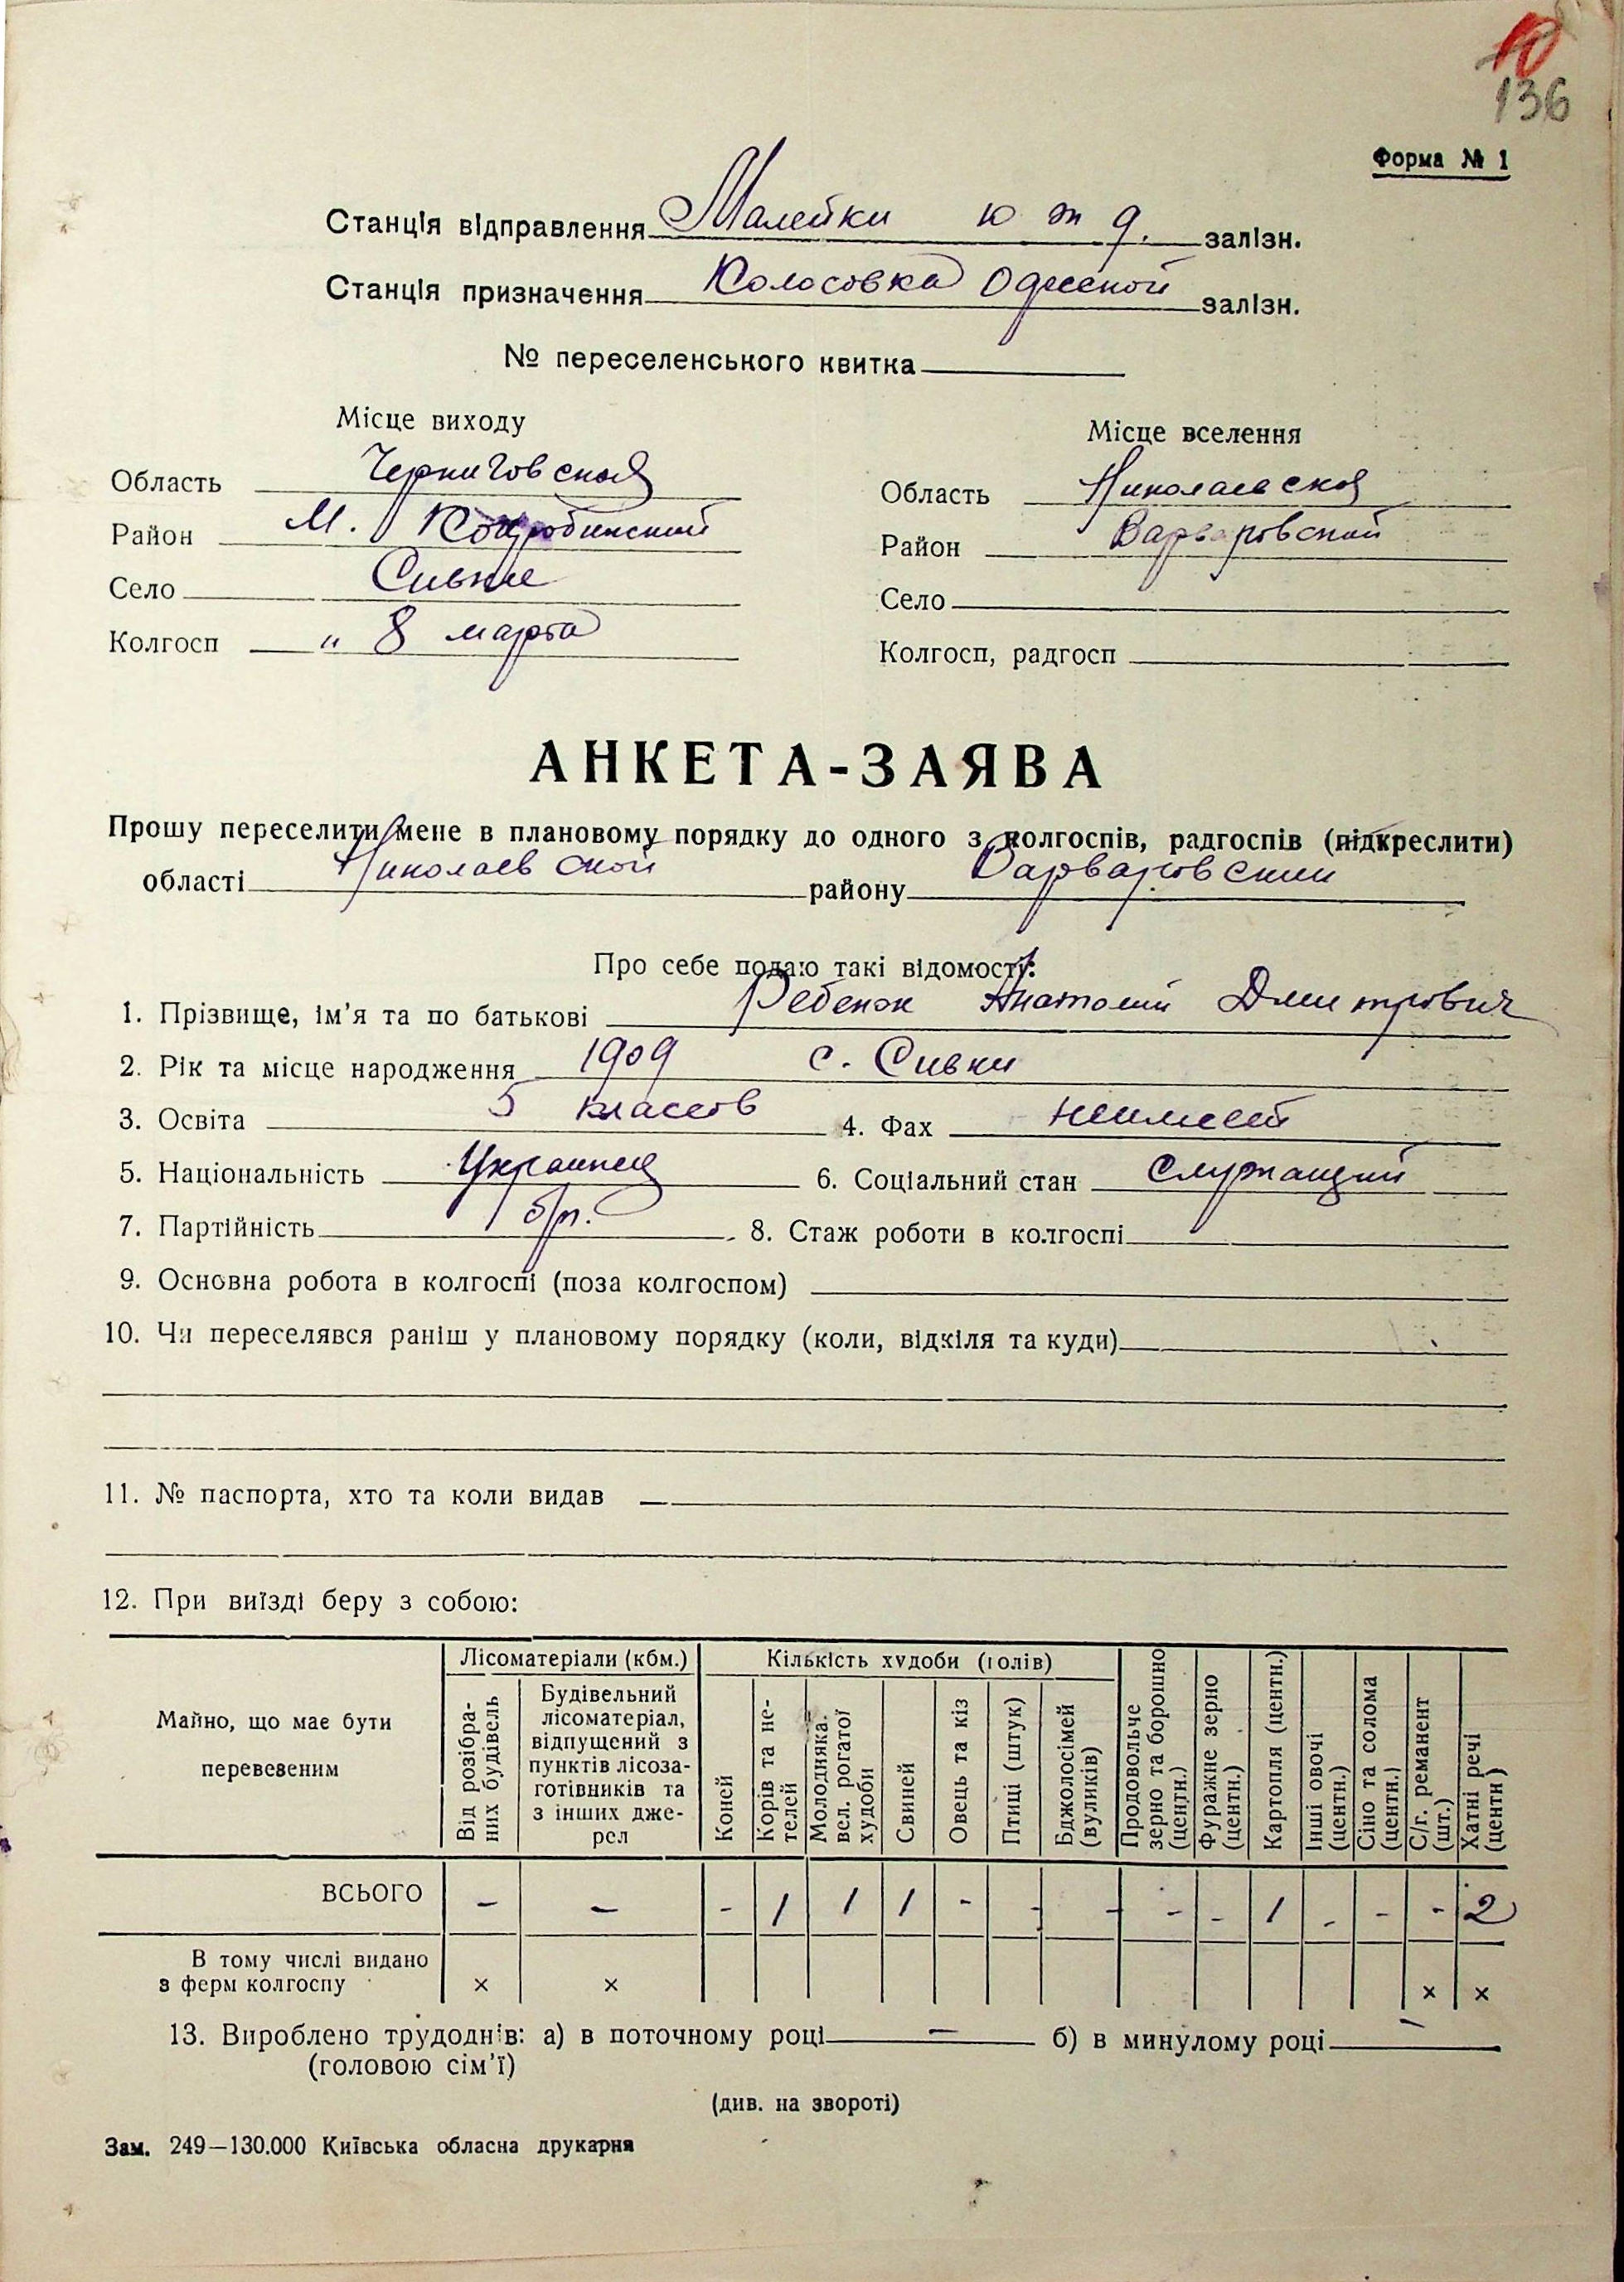 10
136
Форма № 1
Станція відправлення Малейки ю ж д. залізн.
Станція призначення Колосовка Одесской залізн.
№ переселенського квитка
Місце виходу
Область Черниговская
Район М. Коцюбинский
Село Сивки
Колгосп „ 8 марта
Місце вселення
Область Николаевская
Район Варваровский
Село
Колгосп, радгосп
АНКЕТА-ЗАЯВА
Прошу переселити мене в плановому порядку до одного з колгоспів, радгоспів (підкреслити)
області Николаевской району Варваровский
Про себе подаю такі відомості:
1. Прізвище, ім'я та по батькові Ребенок Анатолий Дмитрович
2. Рік та місце народження 1909 с. Сивки
3. Освіта 5 классов 4. Фах неимеет
5. Національність Украинец 6. Соціальний стан Служащий
7. Партійність б/п. 8. Стаж роботи в колгоспі
9. Основна робота в колгоспі (поза колгоспом)
10. Чи переселявся раніш у плановому порядку (коли, відкіля та куди)
11. № паспорта, хто та коли видав
12. При виїзді беру з собою:
Майно, що має бути перевезеним
Лісоматеріали (кбм.)
Від розібраних будівель
Будівельний лісоматеріал, відпущений з пунктів лісозаготівників та з інших джерел
Кількість худоби (голів)
Коней
Корів та нетелей
Молодняка. вел. рогатої худоби
Свиней
Овець та кіз
Птиці (штук)
Бджолосімей (вуликів)
Продовольче зерно та борошно (центн.)
Фуражне зерно (центн.)
Картопля (центн.)
Інші овочі (центн.)
Сіно та солома (центн.)
С/г. реманент (шт.)
Хатні речі (центн)
ВСЬОГО – – - 1 1 1 - - - - - 1 - - - 2
В тому числі видано з ферм колгоспу × × × ×
13. Вироблено трудоднів: а) в поточному році — б) в минулому році —
(головою сім'ї)
(див. на звороті)
Зам. 249—130.000 Київська обласна друкарня